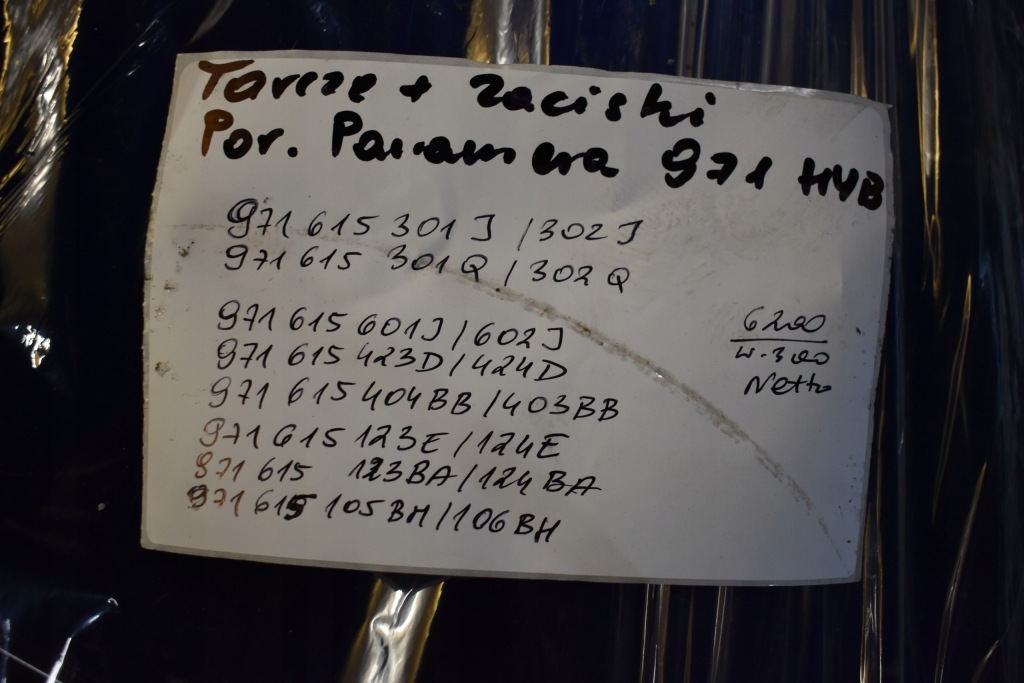 Tarcze + Zaciski
Por. Panamera 971 HYB
971 615 301J / 302J
971 615 301Q / 302Q
971 615 601J / 602J
971 615 423D / 424D
971 615 404BB / 403BB
971 615 123E / 124E
971 615 123BA / 124BA
971 615 105BH / 106BH
6200
W-300
Netto